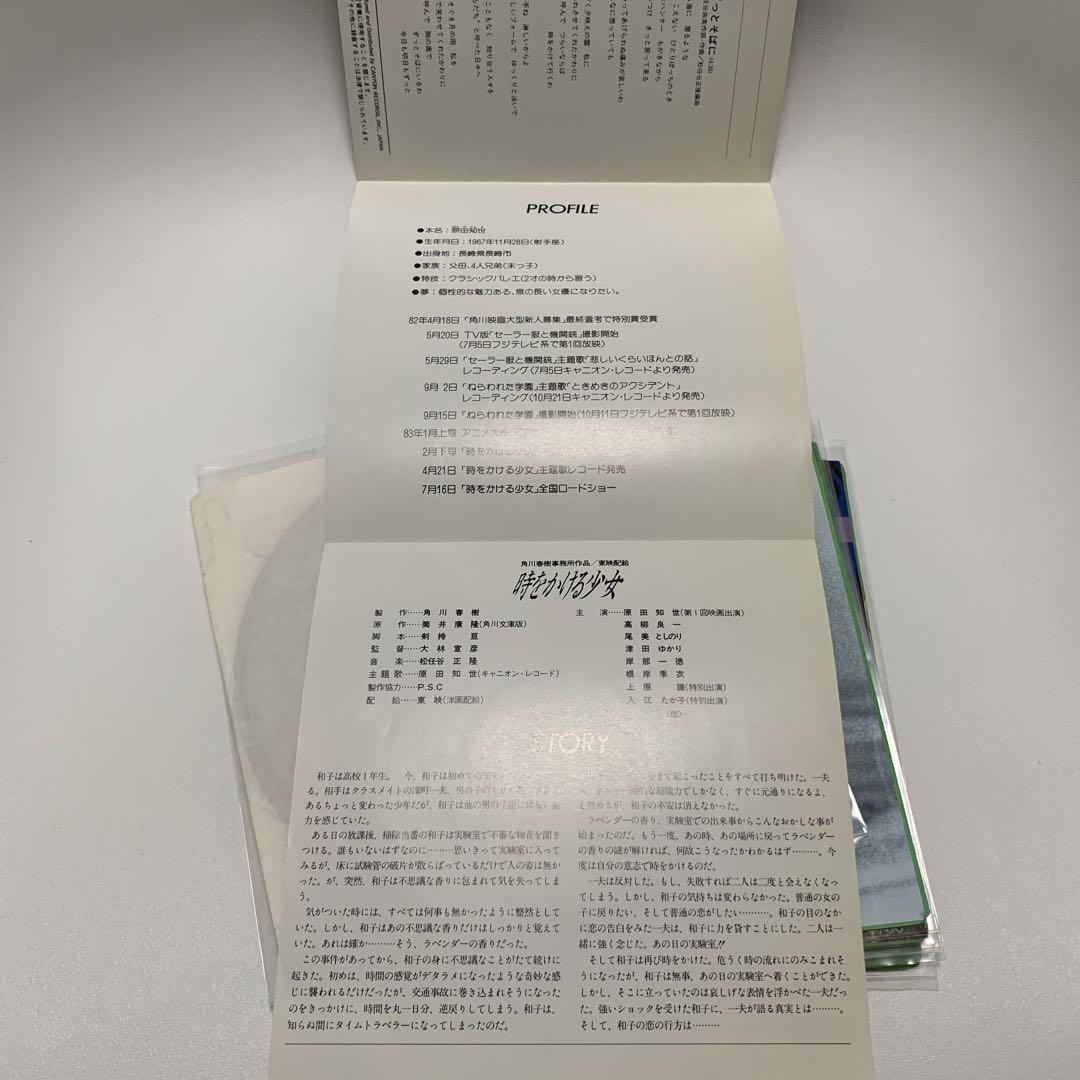 っとそばに (4:38)
時をかけて行くわ
こともなく 知り合う人々を
そぐ8月の雨 私を
で笑わせてくれたかわりに
呼んで 胸の奥で
ずっとそばにいるわ
今日も明日もずっと
tured and Distributed by CANYON RECORDS, INC., JAPAN
PROFILE
●本名:原田知世
●生年月日:1967年11月28日(射手座)
●出身地:長崎県長崎市
●家族:父母、4人兄弟(末っ子)
●特技:クラシックバレエ(2才の時から習う)
●夢:個性的な魅力ある、息の長い女優になりたい。
82年4月18日「角川映画大型新人募集」最終選考で特別賞受賞
5月20日 TV版「セーラー服と機関銃」撮影開始
(7月5日フジテレビ系で第1回放映)
5月29日「セーラー服と機関銃」主題歌「悲しいくらいほんとの話」
レコーディング(7月5日キャニオン・レコードより発売)
9月 2日「ねらわれた学園」主題歌「ときめきのアクシデント」
レコーディング(10月21日キャニオン・レコードより発売)
9月15日「ねらわれた学園」撮影開始(10月11日フジテレビ系で第1回放映)
83年1月上旬 アニメ
2月下旬「時をかけ
4月21日「時をかける少女」主題歌レコード発売
7月16日「時をかける少女」全国ロードショー
角川春樹事務所作品/東映配給
時をかける少女
製作……角川春樹
原作……筒井康隆(角川文庫版)
脚本……剣持亘
監督……大林宣彦
音楽……松任谷正隆
主題歌……原田知世(キャニオン・レコード)
製作協力……P.S.C
配給……東映(洋画配給)
主演……原田知世(第1回映画出演)
高柳良一
尾美としのり
津田ゆかり
岸部一徳
根岸季衣
上原謙(特別出演)
入江たか子(特別出演)
〈他〉
STORY
和子は高校1年生。 今、和子は初めての
る。相手はクラスメイトの深町一夫、男の子のくせに
あるちょっと変わった少年だが、和子は他の男の子達にはない魅
力を感じていた。
ある日の放課後、掃除当番の和子は実験室で不審な物音を聞き
つける。誰もいないはずなのに………思いきって実験室に入って
みるが、床に試験管の破片が散らばっているだけで人の姿は無か
った。が、突然、和子は不思議な香りに包まれて気を失ってしま
う。
気がついた時には、すべては何事も無かったように整然として
いた。しかし、和子はあの不思議な香りだけはしっかりと覚えて
いた。あれは確か………そう、ラベンダーの香りだった。
この事件があってから、和子の身に不思議なことがたて続けに
起きた。初めは、時間の感覚がデタラメになったような奇妙な感
じに襲われるだけだったが、交通事故に巻き込まれそうになった
のをきっかけに、時間を丸一日分、逆戻りしてしまう。和子は、
知らぬ間にタイムトラベラーになってしまったのだ。
まで起こったことをすべて打ち明けた。一夫
時的な超能力でしかなく、すぐに元通りになるよ、
と慰めるが、和子の不安は消えなかった。
ラベンダーの香り、実験室での出来事からこんなおかしな事が
始まったのだ。もう一度、あの時、あの場所に戻ってラベンダー
の香りの謎が解ければ、何故こうなったかわかるはず………。今
度は自分の意志で時をかけるのだ。
一夫は反対した。もし、失敗すれば二人は二度と会えなくなっ
てしまう。しかし、和子の気持ちは変わらなかった。普通の女の
子に戻りたい、そして普通の恋がしたい………。和子の目のなか
に恋の告白をみた一夫は、和子に力を貸すことにした。二人は一
緒に強く念じた。あの日の実験室!!
そして和子は再び時をかけた。危うく時の流れにのみこまれそ
うになったが、和子は無事、あの日の実験室へ着くことができた。
しかし、そこに立っていたのは哀しげな表情を浮かべた一夫だっ
た。強いショックを受けた和子に、一夫が語る真実とは………。
そして、和子の恋の行方は………